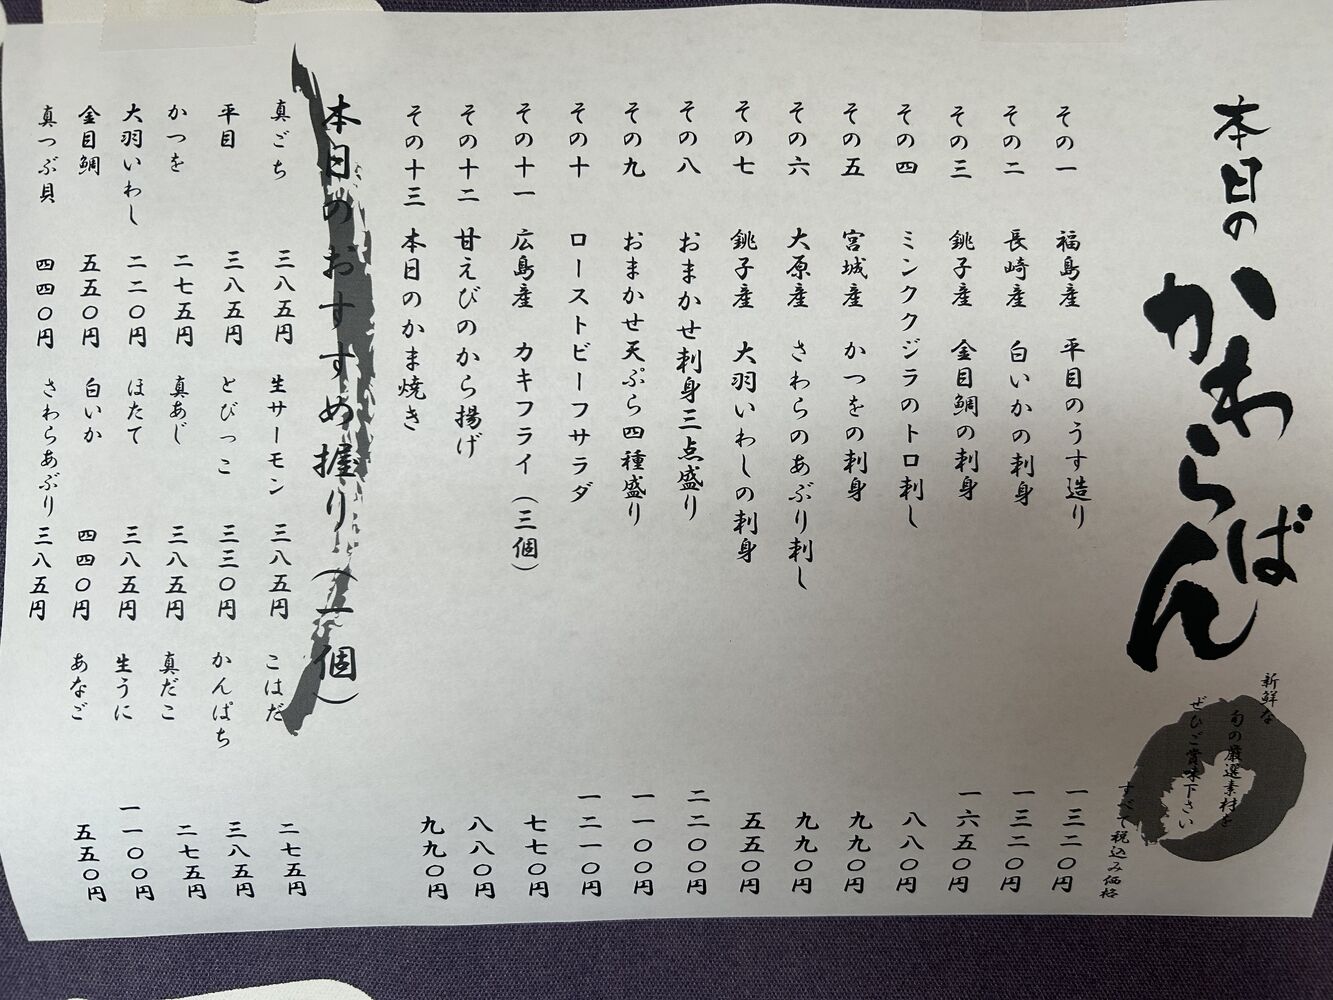 本日の かわらばん
新鮮な
旬の厳選素材を
ぜひご賞味下さい
すべて税込み価格
その一 福島産 平目のうす造り 一三二〇円
その二 長崎産 白いかの刺身 一三二〇円
その三 銚子産 金目鯛の刺身 一六五〇円
その四 ミンククジラのトロ刺し 八八〇円
その五 宮城産 かつをの刺身 九九〇円
その六 大原産 さわらのあぶり刺し 九九〇円
その七 銚子産 大羽いわしの刺身 五五〇円
その八 おまかせ刺身三点盛り 二二〇〇円
その九 おまかせ天ぷら四種盛り 一一〇〇円
その十 ローストビーフサラダ 一二一〇円
その十一 広島産 カキフライ（三個） 七七〇円
その十二 甘えびのから揚げ 八八〇円
その十三 本日のかま焼き 九九〇円
本日のおすすめ握り（一個）
真ごち 三八五円 生サーモン 三八五円 こはだ 二七五円
平目 三八五円 とびっこ 三三〇円 かんぱち 三八五円
かつを 二七五円 真あじ 三八五円 真だこ 二七五円
大羽いわし 二二〇円 ほたて 三八五円 生うに 一一〇〇円
金目鯛 五五〇円 白いか 四四〇円 あなご 五五〇円
真つぶ貝 四四〇円 さわらあぶり 三八五円